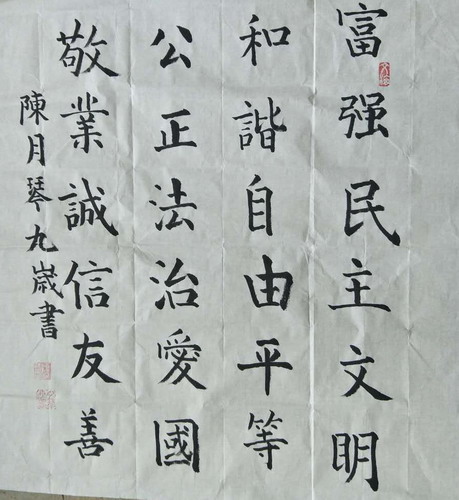 富强民主文明
和諧自由平等
公正法治愛國
敬業誠信友善
陳月琴九歲書